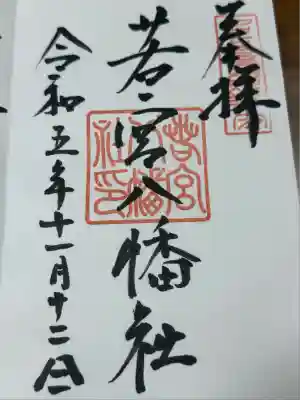 奉拝
若宮八幡社
令和五年十一月十二日
若宮八幡社印